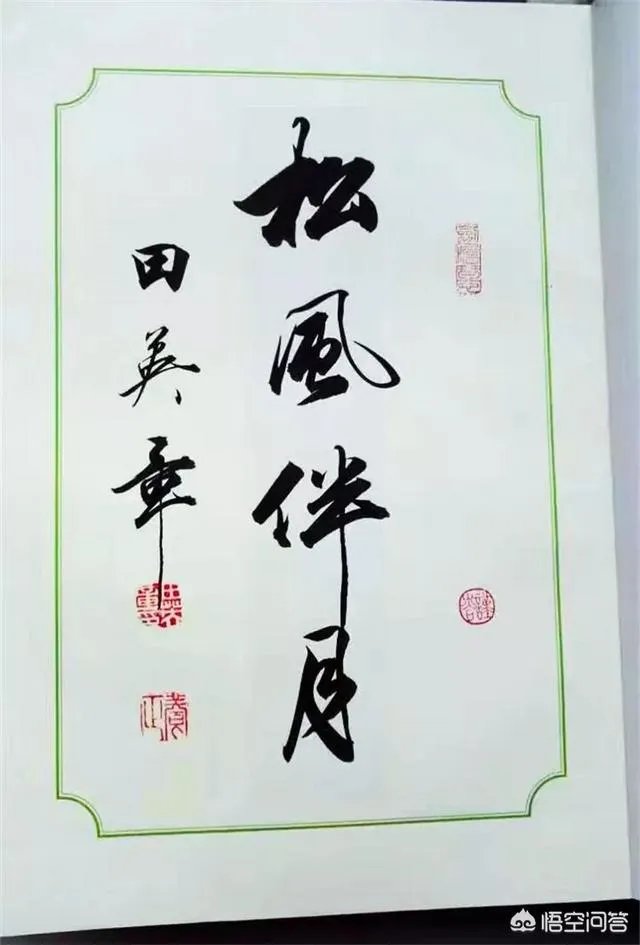 松風伴月
田英章
悟空问答